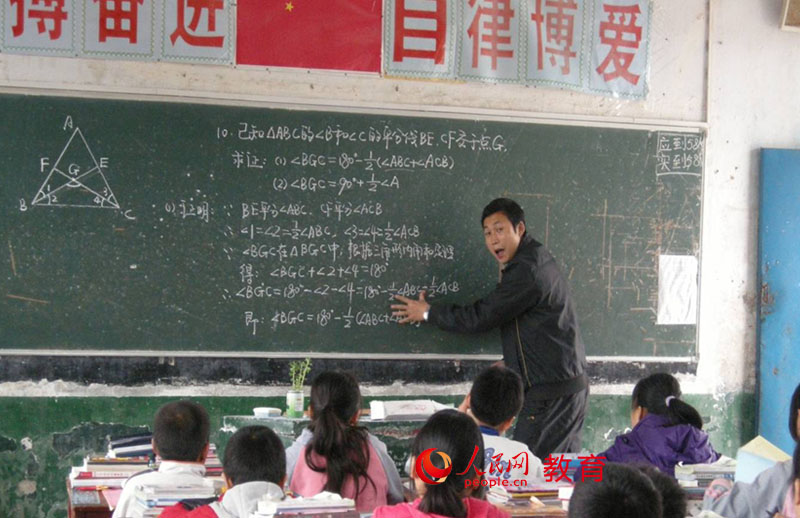 搏奋进 自律博爱
10. 已知△ABC的∠B和∠C的平分线BE、CF交于点G.
求证: (1) ∠BGC=180°-½(∠ABC+∠ACB)
(2) ∠BGC=90°+½∠A
(1) 证明: ∵ BE平分∠ABC, CF平分∠ACB
∴ ∠1=∠2=½∠ABC, ∠3=∠4=½∠ACB
∠BGC在△BGC中, 根据三角形内角和定理
得: ∠BGC+∠2+∠4=180°
∴ ∠BGC=180°-∠2-∠4=180°-½∠ABC-½∠ACB
即: ∠BGC=180°-½(∠ABC+
A
F E
G
1 3
B 2 4 C
应到58人
实到58
人民网 教育
people.cn